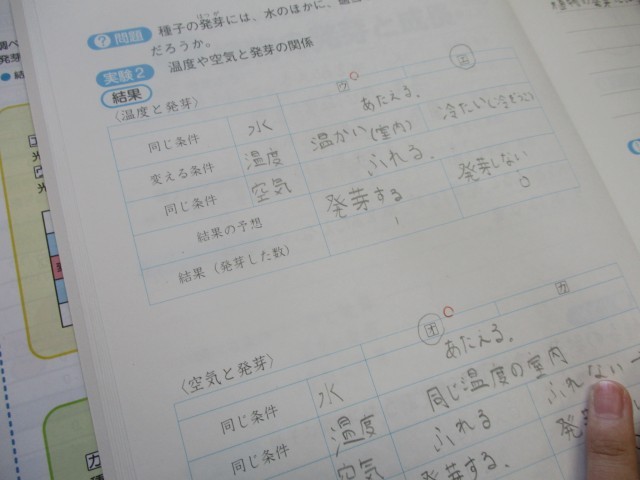 問題 種子の発芽には、水のほかに、
はつが
だろうか。
実験2 温度や空気と発芽の関係
結果
〈温度と発芽〉
ウ エ
同じ条件 水 あたえる。
変える条件 温度 温かい(室内) 冷たい
同じ条件 空気 ふれる。
結果の予想 発芽する 発芽しない
結果(発芽した数) 1 0
〈空気と発芽〉
オ カ
同じ条件 水 あたえる。
同じ条件 温度 同じ温度の室内
空気 ふれる ふれない
発芽する。 発